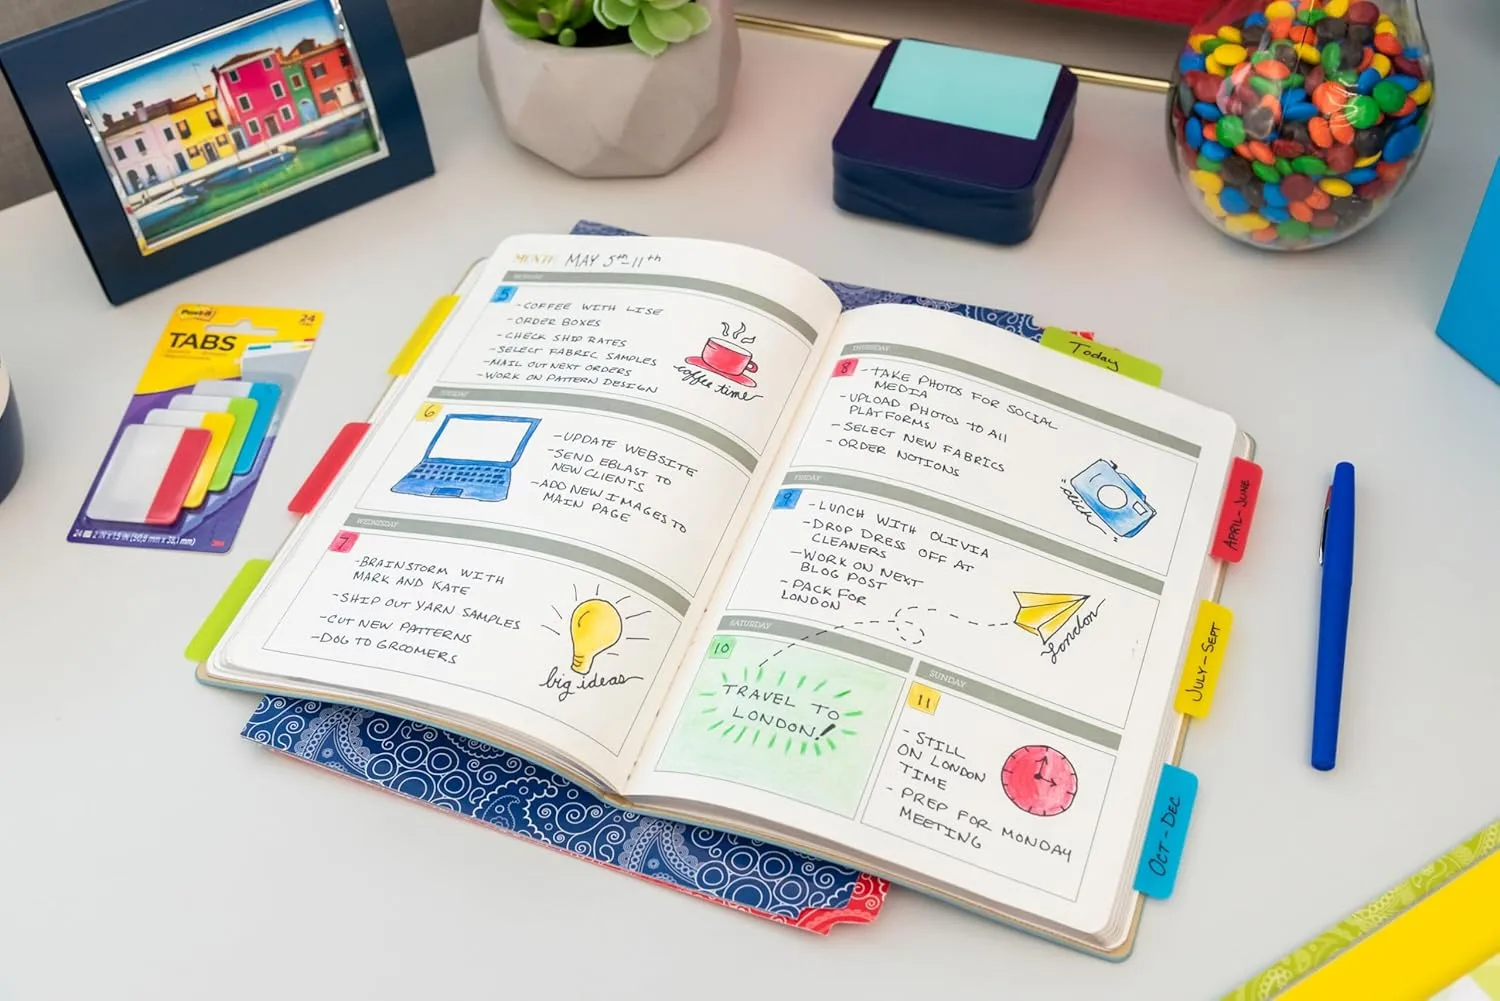 Post-it
24
TABS
24 2 IN x 1.5 IN (50,8 mm x 38,1 mm)
3M
MAY 5th-11th
MONDAY
5
-COFFEE WITH LISE
-ORDER BOXES
-CHECK SHIP RATES
-SELECT FABRIC SAMPLES
-MAIL OUT NEXT ORDERS
-WORK ON PATTERN DESIGN
coffee time
TUESDAY
6
-UPDATE WEBSITE
-SEND EBLAST TO
NEW CLIENTS
-ADD NEW IMAGES TO
MAIN PAGE
WEDNESDAY
7
-BRAINSTORM WITH
MARK AND KATE
-SHIP OUT YARN SAMPLES
-CUT NEW PATTERNS
-DOG TO GROOMERS
big ideas
Today
THURSDAY
8
-TAKE PHOTOS FOR SOCIAL
MEDIA
-UPLOAD PHOTOS TO All
PLATFORMS
-SELECT NEW FABRICS
-ORDER NOTIONS
click
FRIDAY
9
-LUNCH WITH OLIVIA
-DROP DRESS OFF AT
CLEANERS
-WORK ON NEXT
BLOG POST
-PACK FOR
LONDON
London
SATURDAY
10
TRAVEL TO
LONDON!
SUNDAY
11
-STILL
ON LONDON
TIME
-PREP FOR MONDAY
MEETING
APRIL-JUNE
JULY-SEPT
OCT-DEC